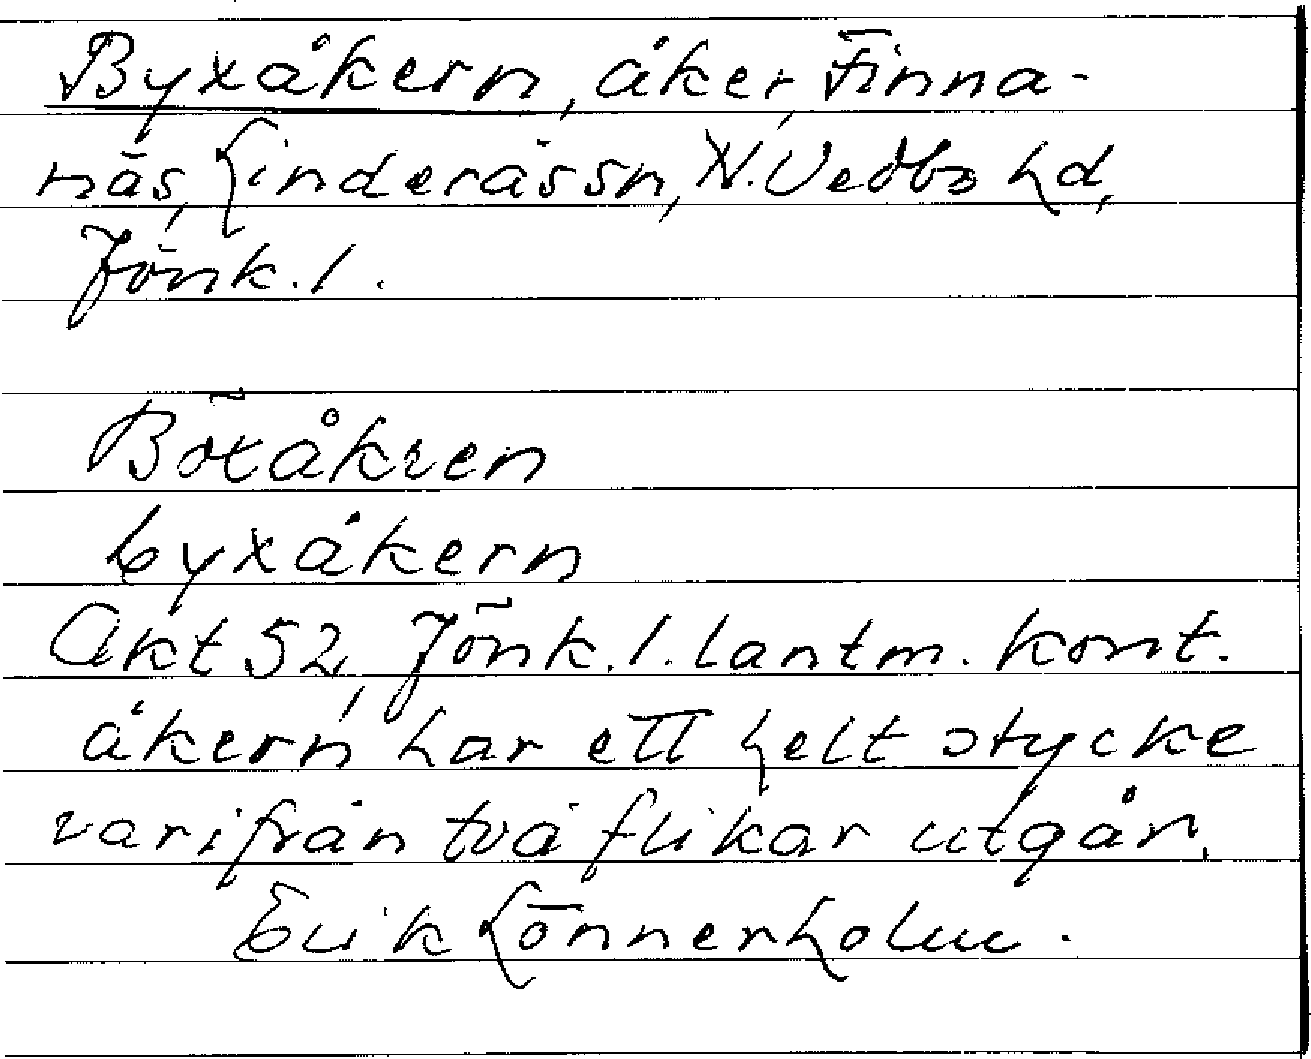 Byxåkern, åker, Finna-
näs, Linderås sn, N. Vedbo hd,
Jönk. l.
Böxåkren
byxåkern
Akt 52, Jönk. l. lantm. kont.
åkern har ett helt stycke
varifrån två flikar utgår.
Erik Lönnerholm.